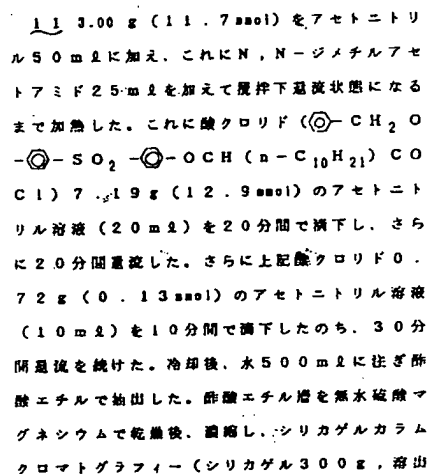 11 3.00g(11.7mmol)をアセトニトリ
ル50mlに加え,これにN,N-ジメチルアセ
トアミド25mlを加えて攪拌下還流状態になる
まで加熱した。これに酸クロリド(-CH2O
-SO2-OCH(n-C10H21)CO
Cl)7.19g(12.9mmol)のアセトニト
リル溶液(20ml)を20分間で滴下し、さら
に20分間還流した。さらに上記酸クロリド0.
72g(0.13mmol)のアセトニトリル溶液
(10ml)を10分間で滴下したのち、30分
間還流を続けた。冷却後、水500mlに注ぎ酢
酸エチルで抽出した。酢酸エチル層を無水硫酸マ
グネシウムで乾燥後、濃縮し、シリカゲルカラム
クロマトグラフィー(シリカゲル300g,溶出